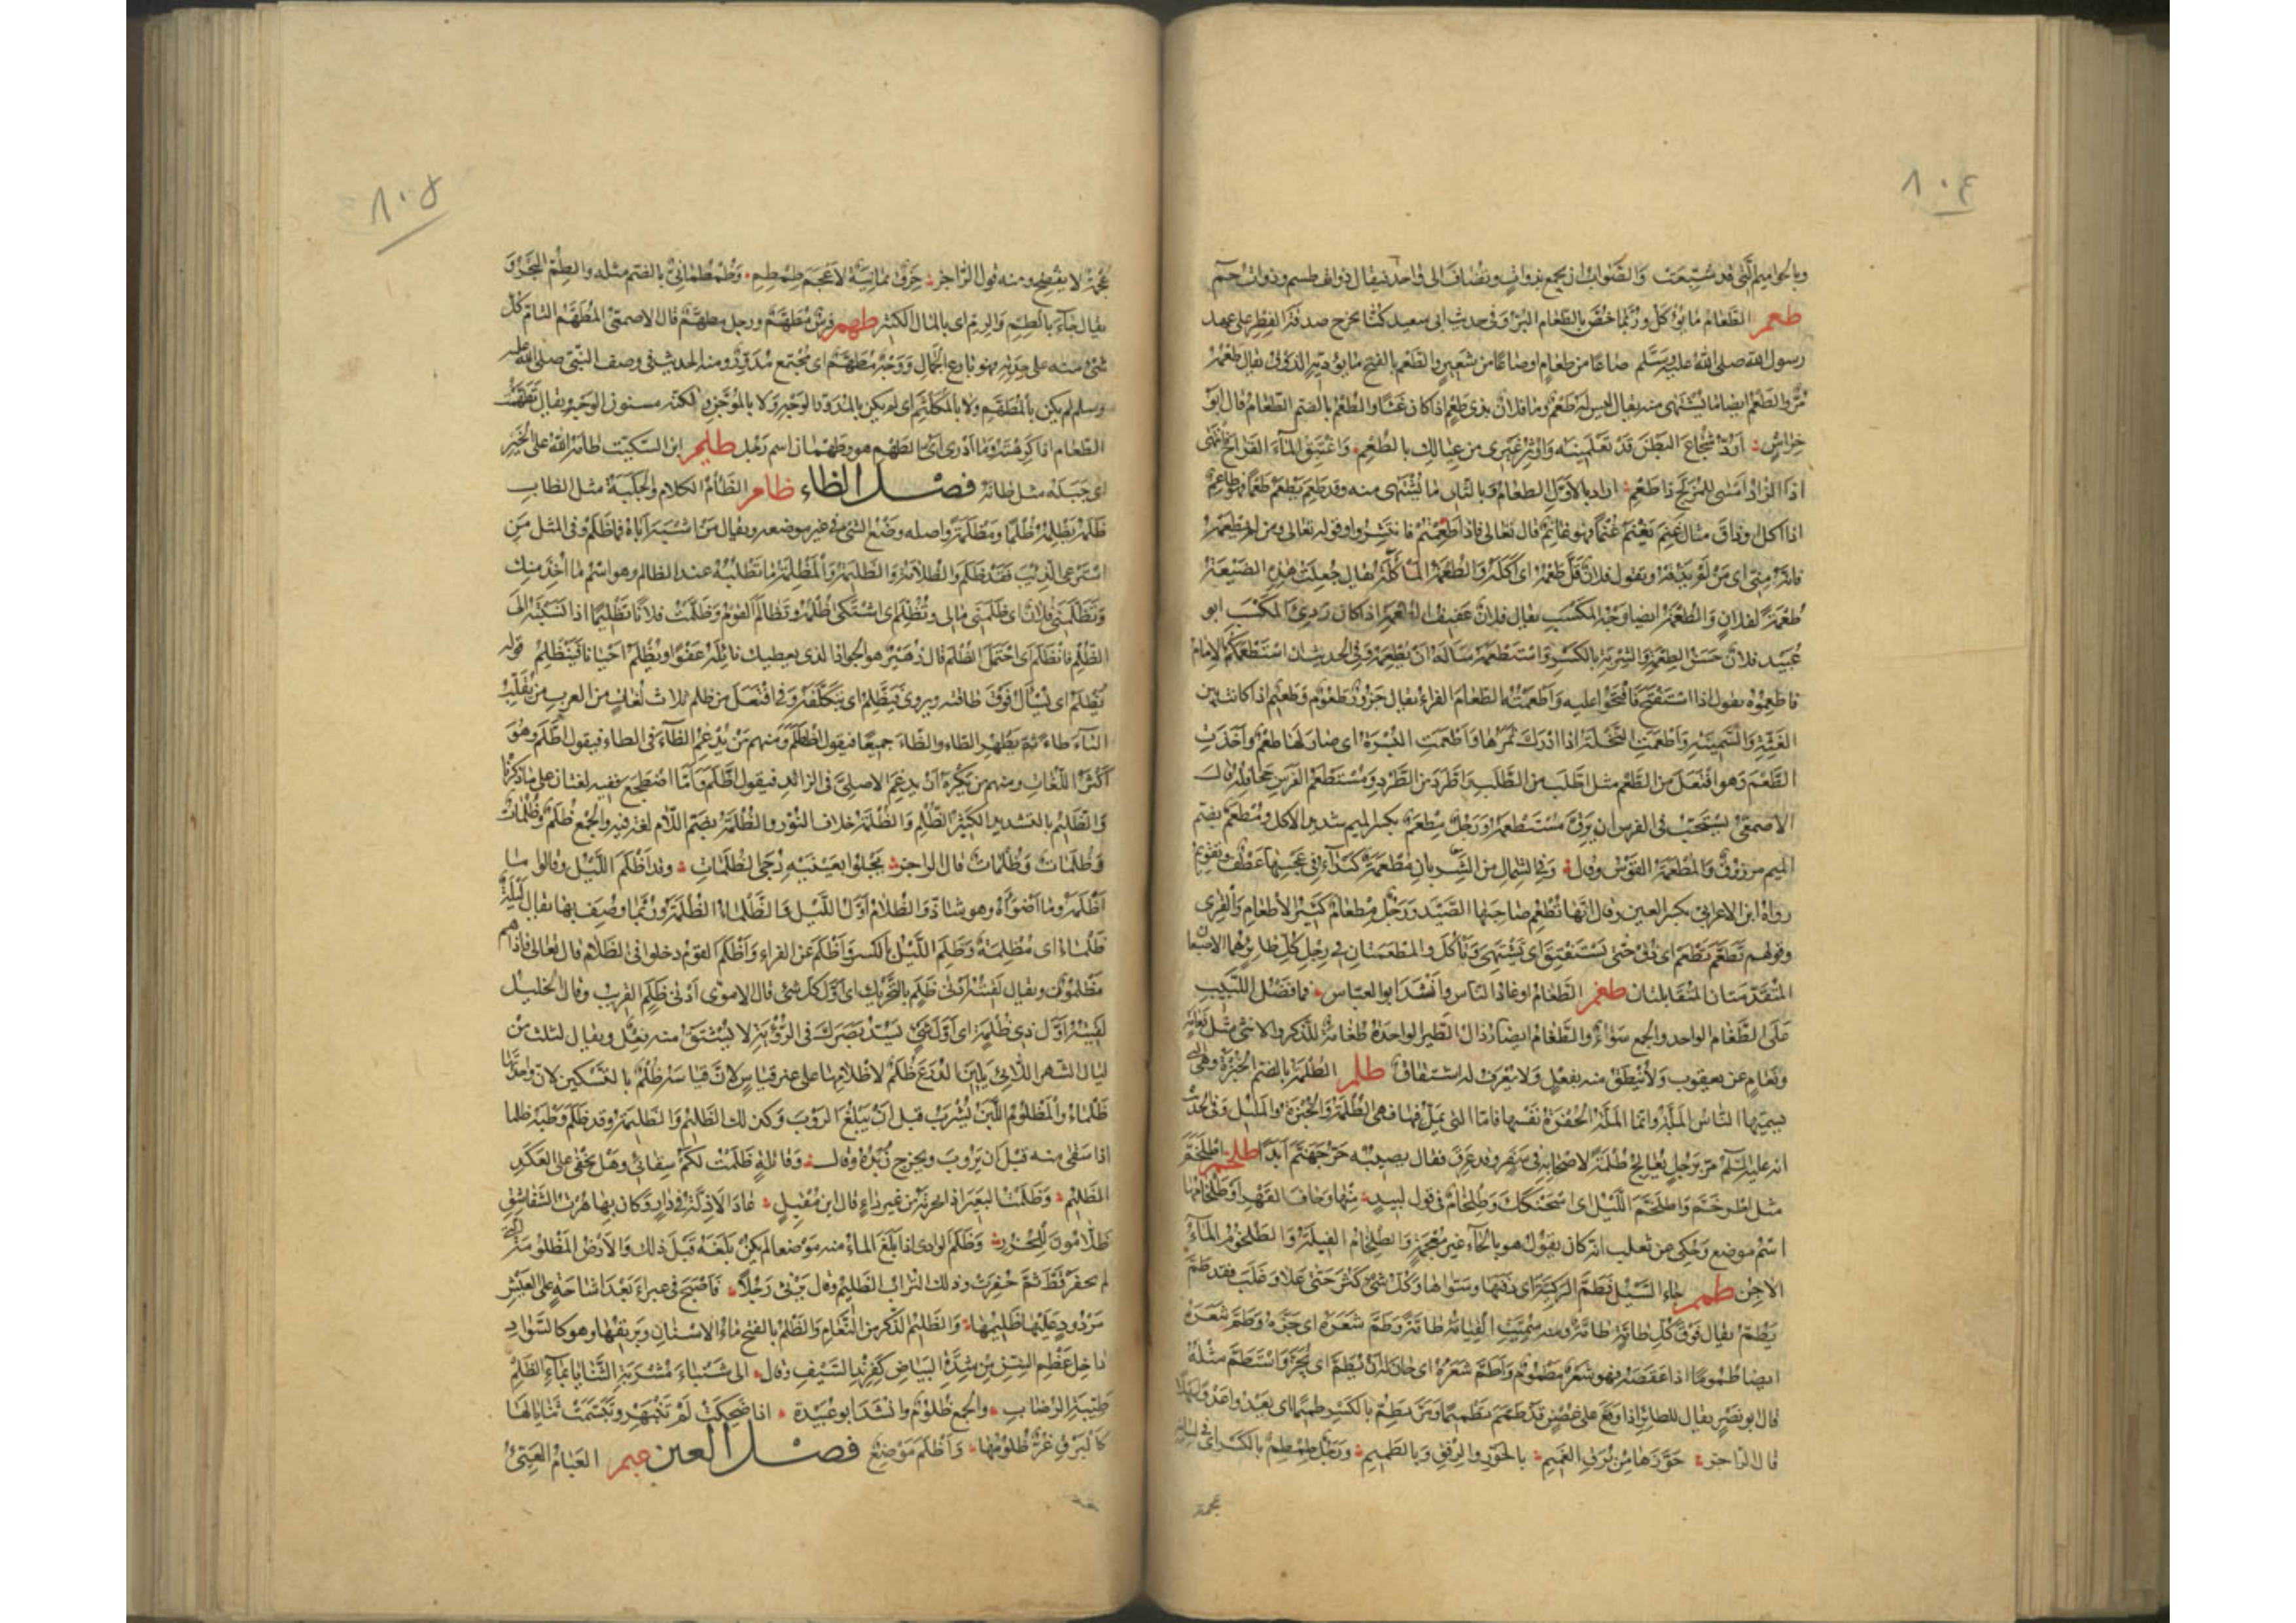 ٨٠٤
وبالحواميم التى قد سُبّعت والصَّواب ان يجمع بذوات ويضاف الى واحد فيقال ذوات طسم وذوات حم
طعم الطَّعَامُ ما يؤكل وربّما خصّ بالطعام البرّ وفى حديث ابى سعيد كنّا نخرج صدقة الفطر على عهد
رسول الله صلى الله عليه وسلم صاعًا من طعام او صاعًا من شعير والطَعم بالفتح ما يؤديه الذوق يقال طعمه
مُرّ والطَّعم ايضا ما يشتهى منه يقال ليس له طَعْم وما فلان بذى طَعم اذا كان غثًّا والطُعم بالضم الطعام قال ابو
خِراشٍ أردّ شجاع البطن قد تعلمينه واوثر غيرى من عيالك بالطُّعم وأغتبق الماء القَراح فانتهى
اذا الزاد امسى للمزلّج ذا طَعم اراد بالاول الطعام وبالثانى ما يُشتهى منه وقد طَعِم يطعم طُعما فهو طاعم
اذا اكل او ذاق مثال غنم يغنم غُنما فهو غانم قال تعالى فاذا طعمتم فانتشروا وقوله تعالى ومن لم يطعمه
فانه منّى اى من لم يذقه ويقول فلان قلّ طُعمه اى أكله والطُعمة المأكلة يقال جعلت هذه الضيعة
طُعمةً لفلان والطُعمة ايضا وجه المكسب يقال فلان عفيف الطعمة اذا كان ردىء المكسب ابو
عُبيد فلان حسن الطِعمة والشِربة بالكسر واستطعمه سأله ان يُطعمه وفى الحديث ان استطعمكم الامام
فاطعموه يقول اذا استفتح فافتحوا عليه وأطعمته الطعام الفراء يقال جزور طَعوم وطَعيم اذا كانت بين
الغثّة والسمينة وأطعمت النخلة اذا ادرك ثمرها واطّعمت البُسرة اى صار لها طعم وأخذت
الطَّعم وهو افتعل من الطعم مثل اطّلب من الطلب واطّرد من الطرد ومستطعم الفرس جحافله قال
الاصمعى يستحبّ فى الفرس ان يرقّ مستطعمه ورجل مِطعم بكسر الميم شديد الاكل ومُطعم بضم
الميم مرزوق والمُطعمة القوس وقال وفى الشمال من الشريان مطعمة كبداء فى عجسها عطف وتقويم
رواه ابن الاعرابى بكسر العين وقال انها تُطعم صاحبها الصَّيد ورجل مِطعام كثير الاطعام والقِرى
وقولهم تَطعّم تَطعَم اى ذُق حتى تستفيق اى تشتهى وتأكل والمطعمتان فى رِجل كل طائر هما الاصبعان
المتقدمتان المتقابلتان طغم الطَّغام اوغاد الناس وأنشد ابو العباس فما فضل اللبيب
على الطَّغام الواحد والجمع سواء والطَّغام ايضا رُذال الطير الواحدة طغامة للذكر والانثى مثل نعامة
ونعام عن يعقوب ولا ينطق منه بفعل ولا يعرف له اشتقاق طلم الطُلمة بالضم الخبزة وهى التى
يسميها الناس المَلّة وانما المَلّة الحفرة نفسها فامّا التى يملّ فيها فهى الطُلمة والخبزة والمليل وفى الحديث
انه عليه السلام مرّ برجل يعالج طُلمةً لاصحابه فى سفر وقد عرق فقال لا يصيبه حرّ جهنم أبدًا طلخم اطلخَمَّ
مثل اطرخمّ واطلخمّ الليل اى اسحنكك وطِلخام فى قول لبيد منها وحاف القهر او طِلخامها
اسم موضع وحُكى عن ثعلب انه كان يقول هو بالحاء غير معجمة والطِلخام الفيلة والطُلخوم الماء
الآجن طمم جاء السيل فطمّ الركيّة اى دفنها وسوّاها وكل شىء كثر حتى علا وغلب فقد طمّ
يطمّ يقال فوق كل طامّة طامّة ومنه سمّيت القيامة طامّة وطمّ شعره اى جزّه وطمّ شعره
ايضا طُمومًا اذا عقصه فهو شعر مطموم وأطمّ شعره اى حان له ان يُطمّ اى يُجزّ واستطمّ مثله
قال ابو نصر يقال للطائر اذا وقع على غصن قد طمّم تطميما ومرّ يطِمّ بالكسر طميما اى يعدو عدوا سهلا
قال الراجز حوّزها من بُرَق الغَميم بالحوز والرفق وبالطميم ورجل طِمطِم بالكسر اى فى لسانه
عجمة
٨٠٥
عجمة لا يفصح ومنه قول الراجز حِزق يمانية لاعجم طِمطِم وطُمطُمانى بالضم مثله والطِمّ البحر و
يقال جاء بالطِمّ والرِمّ اى بالمال الكثير طهم فرس مطهّم ورجل مطهّم قال الاصمعى المطهّم التام كل
شىء منه على حدته فهو بارع الجمال ووجه مطهّم اى مجتمع مدوّر ومنه الحديث فى وصف النبى صلى الله عليه
وسلم لم يكن بالمطهّم ولا بالمكلثم اى لم يكن بالمدوّر الوجه ولا بالموجّن ولكنه مسنون الوجه ويقال تطهّمت
الطعام اذا كرهته وما أدرى أىّ الطَهم هو وطَهمان اسم رجل طيم ابن السكيت طامه الله على الخير
اى جبله مثل طانه فصل الظاء ظام الظَّأم الكلام والجلبة مثل الظأب
ظلمه يظلمه ظُلمًا ومظلمة واصله وضع الشىء فى غير موضعه ويقال من اشبه أباه فما ظلم وفى المثل من
استرعى الذئب فقد ظلم والظُلامة والظليمة والمظلمة ما تطلبه عند الظالم وهو اسم ما أُخذ منك
وتظلّمنى فلان اى ظلمنى مالى وتظلّم اى اشتكى ظلمه وتظالم القوم وظلّمت فلانًا تظليما اذا نسبته الى
الظلم فانظلم اى احتمل الظلم قال زهير هو الجواد الذى يعطيك نائله عفوًا ويُظلم أحيانا فينظلم قوله
يُظلم اى يُسأل فوق طاقته ويروى فيظّلم اى يتكلّفه وفى افتعل من ظلم ثلاث لغات من العرب من يقلب
التاء طاء ثم يظهر الطاء والظاء جميعا فيقول اظطلم ومنهم من يدغم الظاء فى الطاء فيقول اطّلم وهو
أكثر اللغات ومنهم من يكره ان يدغم الاصلىّ فى الزائد فيقول اظّلم وأمّا اضطجع ففيه لغتان على ما ذكرنا
والظِلّيم بالتشديد الكثير الظلم والظُلمة خلاف النور والظُلُمة بضم اللام لغة فيه والجمع ظُلَم وظُلُمات
وظُلَمات وظُلْمات قال الراجز يجلو بعينيه دجى الظُلمات وقد أظلم الليل وقالوا ما
أظلمه وما أضوأه وهو شاذّ والظَلام أول الليل والظلماء الظلمة وربما وصف بها يقال ليلة
ظلماء اى مظلمة وظلِم الليل بالكسر وأظلم عن الفراء وأظلم القوم دخلوا فى الظلام قال تعالى فاذا هم
مظلمون ويقال لقيته أدنى ظَلَم بالتحريك اى أول كل شىء قال الاموى أدنى ظلم القريب وقال الخليل
لقيته أول ذى ظُلمة اى أول شىء يسدّ بصرك فى الرؤية لا يشتق منه فعل ويقال لثلث من
ليال الشهر اللاتى يلين الدُرَع ظُلَم لاظلامها على غير قياس لان قياسه ظُلْم بالتسكين لان واحدتها
ظلماء والمظلوم اللبن يُشرب قبل ان يبلغ الرُوب وكذلك الظليم والظليمة وقد ظلم وطبه ظلما
اذا سقى منه قبل ان يروب ويخرج زبده وقال وقائلةٍ ظلمت لكم سقائى وهل يخفى على العكد
الظليم وظلمت البعير اذا نحرته من غير داء قال ابن مقبل عاد الاذلّة فى دار وكان بها هُرت الشقاشق
ظلّامون للجزر وظلم الوادى اذا بلغ الماء منه موضعا لم يكن بلغه قبل ذلك والارض المظلومة التى
لم تحفر قط ثم حُفرت وذلك التراب الظليم وقال يرثى رجلاً فأصبح فى غبراء بعد اشاحة على العيش
مردود عليها ظليمها والظليم الذكر من النعام والظَلم بالفتح ماء الاسنان وبريقها وهو كالسواد
داخل عظم السنّ من شدّة البياض كفرند السيف وقال الى شنباء مشربة الثنايا بماء الظلم
طيّبة الرضاب والجمع ظُلوم وأنشد ابو عبيدة اذا ضحكت لم تنبهر وتبسّمت ثنايا لها
كالبرق غرّ ظلومها وأظلم موضع فصل العين عبم العَبام العيىّ